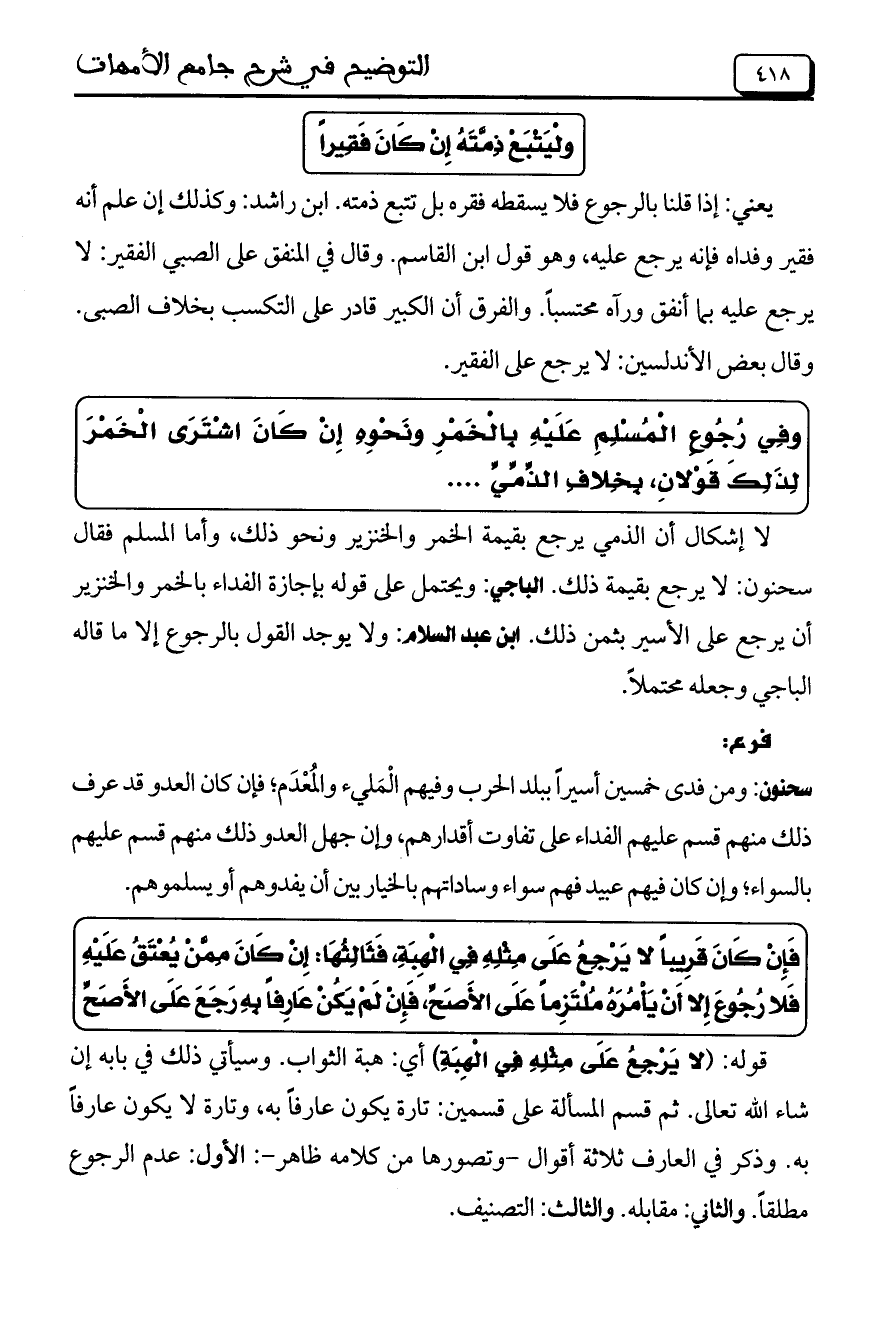 ٤١٨
التوضيح في شرح جامع الأمهات
ولْيَتْبَعْ ذِمَّتَهُ إِنْ كَانَ فَقِيراً
يعني: إذا قلنا بالرجوع فلا يسقطه فقره بل تتبع ذمته. ابن راشد: وكذلك إن علم أنه
فقير وفداه فإنه يرجع عليه، وهو قول ابن القاسم. وقال في المنفق على الصبي الفقير: لا
يرجع عليه بما أنفق ورآه محتسباً. والفرق أن الكبير قادر على التكسب بخلاف الصبى.
وقال بعض الأندلسين: لا يرجع على الفقير.
وفِي رُجُوعِ الْمُسْلِمِ عَلَيْهِ بِالْخَمْرِ ونَحْوِهِ إِنْ كَانَ اشْتَرَى الْخَمْرَ
لِذَلِكَ قَوْلانِ، بِخِلافِ الذِّمِّيِّ ....
لا إشكال أن الذمي يرجع بقيمة الخمر والخنزير ونحو ذلك، وأما المسلم فقال
سحنون: لا يرجع بقيمة ذلك. الباجي: ويحتمل على قوله بإجازة الفداء بالخمر والخنزير
أن يرجع على الأسير بثمن ذلك. ابن عبد السلام: ولا يوجد القول بالرجوع إلا ما قاله
الباجي وجعله محتملاً.
فرع:
سحنون: ومن فدى خمسين أسيراً ببلد الحرب وفيهم الْمَليء والْمُعْدَم؛ فإن كان العدو قد عرف
ذلك منهم قسم عليهم الفداء على تفاوت أقدارهم، وإن جهل العدو ذلك منهم قسم عليهم
بالسواء؛ وإن كان فيهم عبيد فهم سواء وساداتهم بالخيار بين أن يفدوهم أو يسلموهم.
فَإِنْ كَانَ قَرِيباً لا يَرْجِعُ عَلَى مِثْلِهِ فِي الْهِبَةِ، فَثَالِثُهَا: إِنْ كَانَ مِمَّنْ يُعْتَقُ عَلَيْهِ
فَلا رُجُوعَ إِلا أَنْ يَأْمُرَهُ مُلْتَزِماً عَلَى الأَصَحِّ، فَإِنْ لَمْ يَكُنْ عَارِفاً بِهِ رَجَعَ عَلَى الأَصَحِّ
قوله: (لا يَرْجِعُ عَلَى مِثْلِهِ فِي الْهِبَةِ) أي: هبة الثواب. وسيأتي ذلك في بابه إن
شاء الله تعالى. ثم قسم المسألة على قسمين: تارة يكون عارفاً به، وتارة لا يكون عارفاً
به. وذكر في العارف ثلاثة أقوال -وتصورها من كلامه ظاهر-: الأول: عدم الرجوع
مطلقاً. والثاني: مقابله. والثالث: التصنيف.